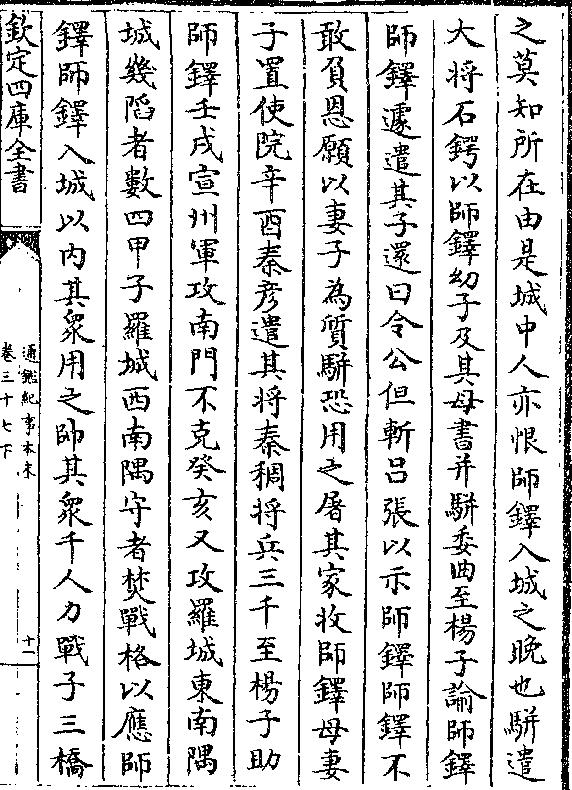 之莫知所在由是城中人亦恨師鐸入城之晩也駢遣
大將石鍔以師鐸幼子及其母書并駢委曲至楊子諭師鐸
師鐸遽遣其子還曰令公但斬吕張以示師鐸師鐸不
敢負恩願以妻子為質駢恐用之屠其家收師鐸母妻
子置使院辛酉秦彦遣其將秦稠將兵三千至楊子助
師鐸壬戌宣州軍攻南門不克癸亥又攻羅城東南隅
城幾陷者數四甲子羅城西南隅守者焚戰格以應師
鐸師鐸入城以内其衆用之帥其衆千人力戰于三橋
欽定四庫全書
通鑑紀事本末
卷三十七下
十一